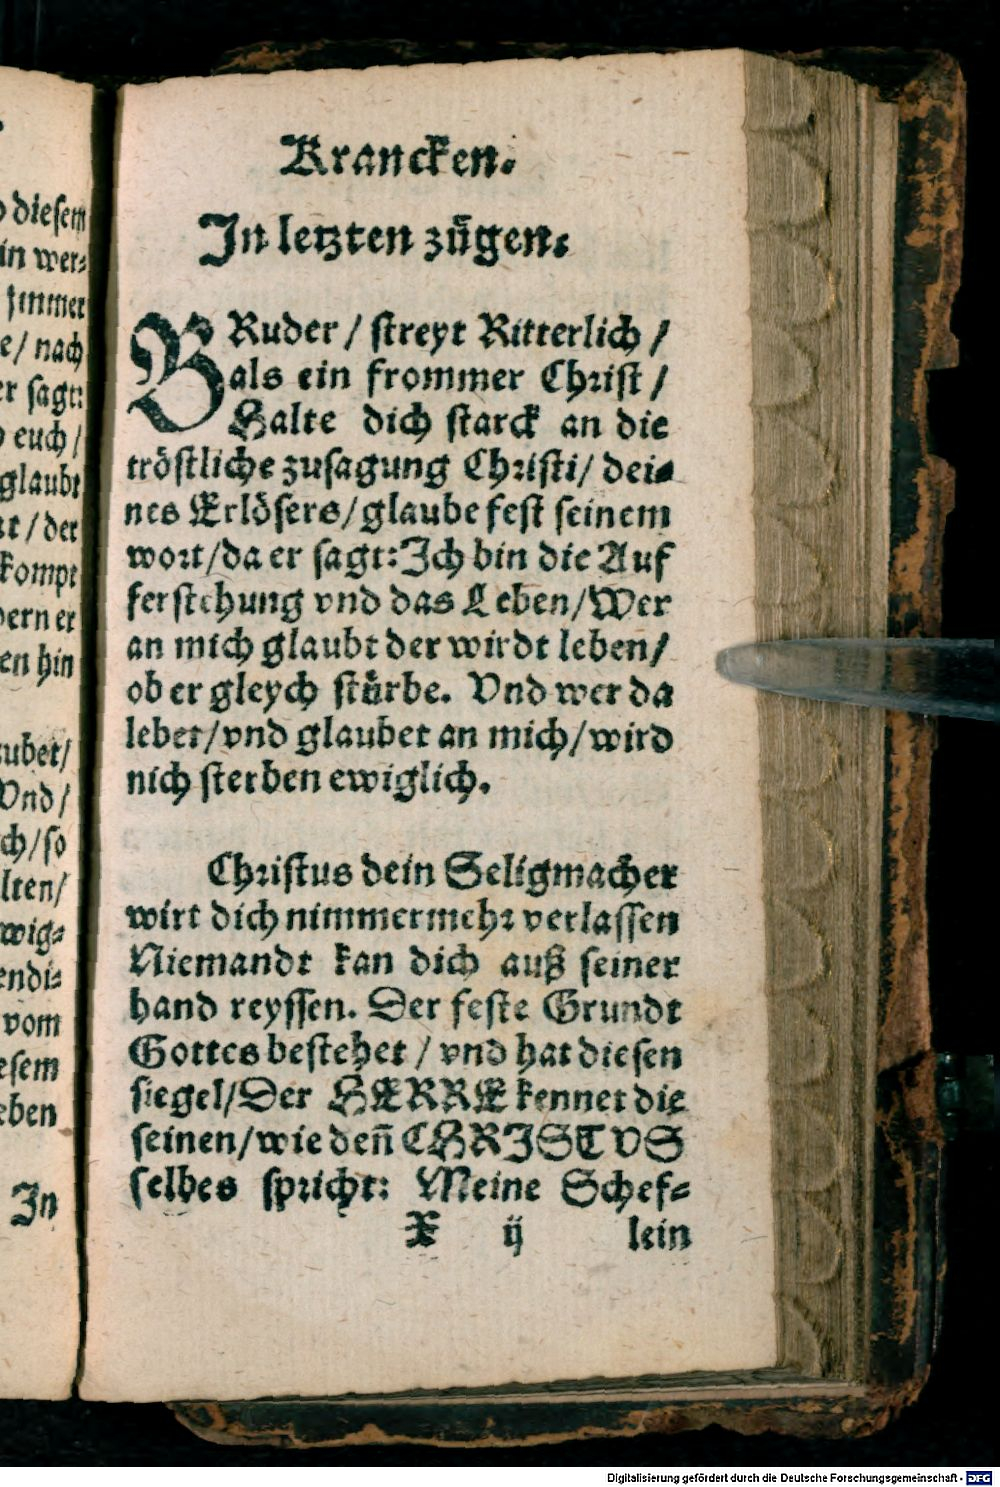 diesem
in wer⸗
jmmer
e/ nach
er sagt:
euch/
glaubt
/ der
kompt
dern er
en hin
ubet/
Vnd/
ch/so
lten/
wig⸗
endi⸗
vom
esem
eben
In
Krancken.
In letzten zügen.
BRuder / streyt Ritterlich /
als ein frommer Christ /
Halte dich starck an die
tröstliche zusagung Christi/ dei⸗
nes Erlösers/glaube fest seinem
wort/da er sagt: Ich bin die Auf
ferstehung vnd das Leben/Wer
an mich glaubt der wirdt leben/
ob er gleych stürbe. Vnd wer da
lebet/vnd glaubet an mich/wird
nich sterben ewiglich.
Christus dein Seligmacher
wirt dich nimmermehr verlassen
Niemandt kan dich auß seiner
hand reyssen. Der feste Grundt
Gottes bestehet / vnd hat diesen
siegel/Der HERRE kennet die
seinen/wie deñ CHRISTVS
selbes spricht: Meine Schef⸗
X ij lein
Digitalisierung gefördert durch die Deutsche Forschungsgemeinschaft - DFG